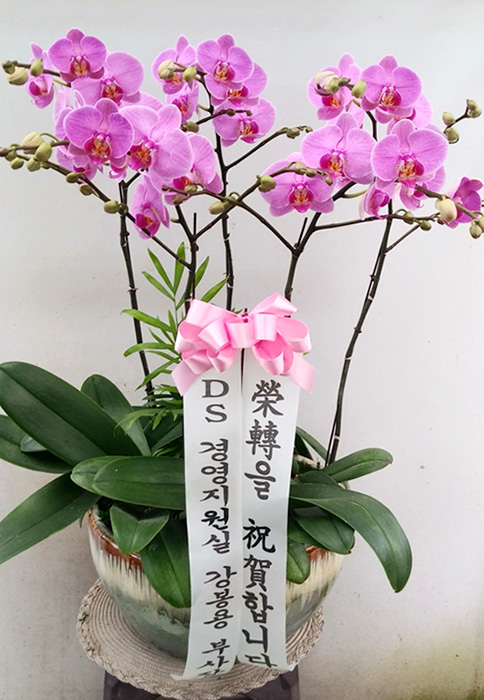 榮轉을 祝賀합니다
DS 경영지원실 강봉용 부사장